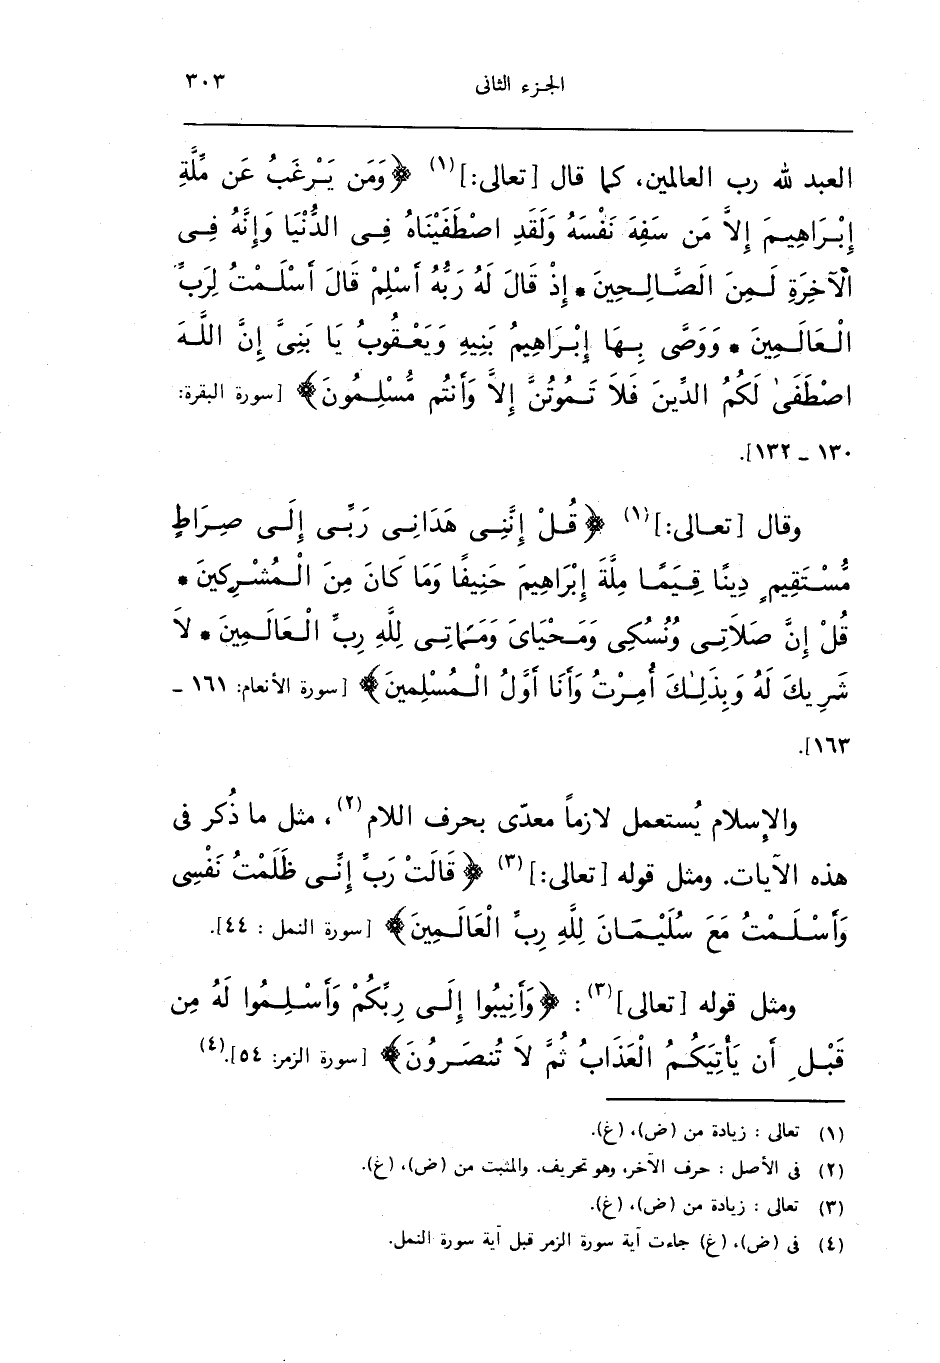 الجزء الثانى ٣٠٣
العبد لله رب العالمين، كما قال [تعالى:](١) ﴿وَمَن يَرْغَبُ عَن مِّلَّةِ
إِبْرَاهِيمَ إِلاَّ مَن سَفِهَ نَفْسَهُ وَلَقَدِ اصْطَفَيْنَاهُ فِى الدُّنْيَا وَإِنَّهُ فِى
الْآخِرَةِ لَمِنَ الصَّالِحِينَ * إِذْ قَالَ لَهُ رَبُّهُ أَسْلِمْ قَالَ أَسْلَمْتُ لِرَبِّ
الْعَالَمِينَ * وَوَصَّى بِهَا إِبْرَاهِيمُ بَنِيهِ وَيَعْقُوبُ يَا بَنِىَّ إِنَّ اللَّهَ
اصْطَفَىٰ لَكُمُ الدِّينَ فَلاَ تَمُوتُنَّ إِلاَّ وَأَنتُم مُّسْلِمُونَ﴾ [سورة البقرة:
١٣٠ ـ ١٣٢].
وقال [تعالى:](١) ﴿قُلْ إِنَّنِى هَدَانِى رَبِّى إِلَى صِرَاطٍ
مُّسْتَقِيمٍ دِينًا قِيَمًا مِلَّةَ إِبْرَاهِيمَ حَنِيفًا وَمَا كَانَ مِنَ الْمُشْرِكِينَ *
قُلْ إِنَّ صَلاَتِى وَنُسُكِى وَمَحْيَاىَ وَمَمَاتِى لِلَّهِ رِبِّ الْعَالَمِينَ * لاَ
شَرِيكَ لَهُ وَبِذَلِكَ أُمِرْتُ وَأَنَا أَوَّلُ الْمُسْلِمينَ﴾ [سورة الأنعام: ١٦١ ـ
١٦٣].
والإسلام يُستعمل لازماً معدّى بحرف اللام(٢)، مثل ما ذُكر فى
هذه الآيات. ومثل قوله [تعالى:](٣) ﴿قَالَتْ رَبِّ إِنِّى ظَلَمْتُ نَفْسِى
وَأَسْلَمْتُ مَعَ سُلَيْمَانَ لِلَّهِ رِبِّ الْعَالَمِينَ﴾ [سورة النمل : ٤٤].
ومثل قوله [تعالى](٣): ﴿وَأَنِيبُوا إِلَى رِبِّكُمْ وَأَسْلِمُوا لَهُ مِن
قَبْلِ أَن يَأْتِيَكُمُ الْعَذَابُ ثُمَّ لاَ تُنصَرُونَ﴾ [سورة الزمر: ٥٤].(٤)
(١) تعالى : زيادة من (ض)، (غ).
(٢) فى الأصل : حرف الآخر، وهو تحريف. والمثبت من (ض)، (غ).
(٣) تعالى : زيادة من (ض)، (غ).
(٤) فى (ض)، (غ) جاءت آية سورة الزمر قبل آية سورة النمل.